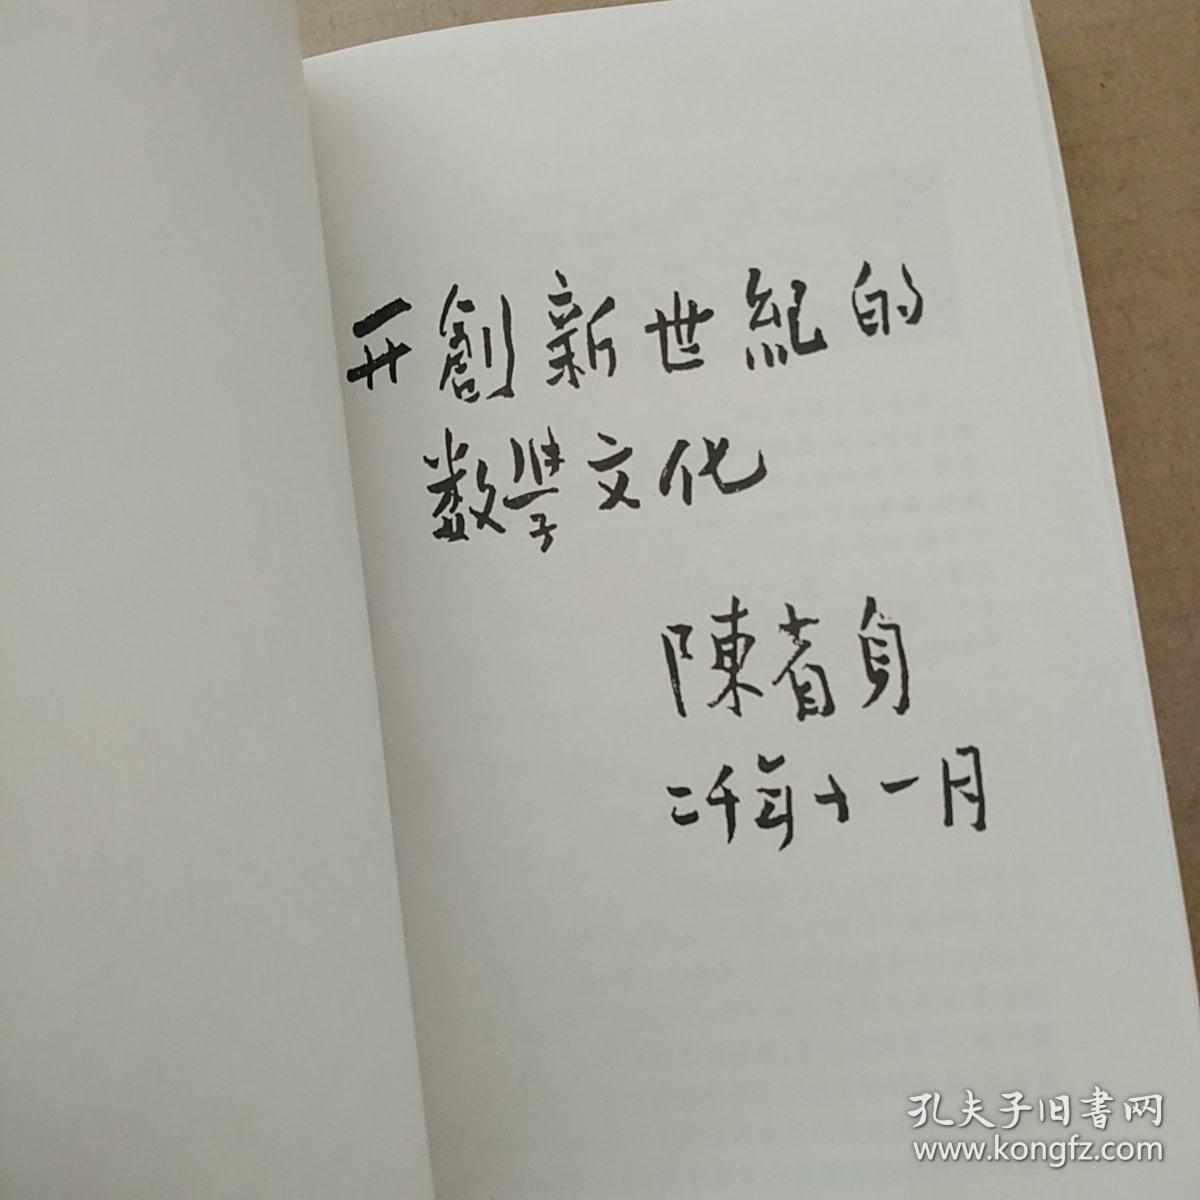 开創新世紀的
数學文化
陳省身
二千年十一月
孔夫子旧書网
www.kongfz.com